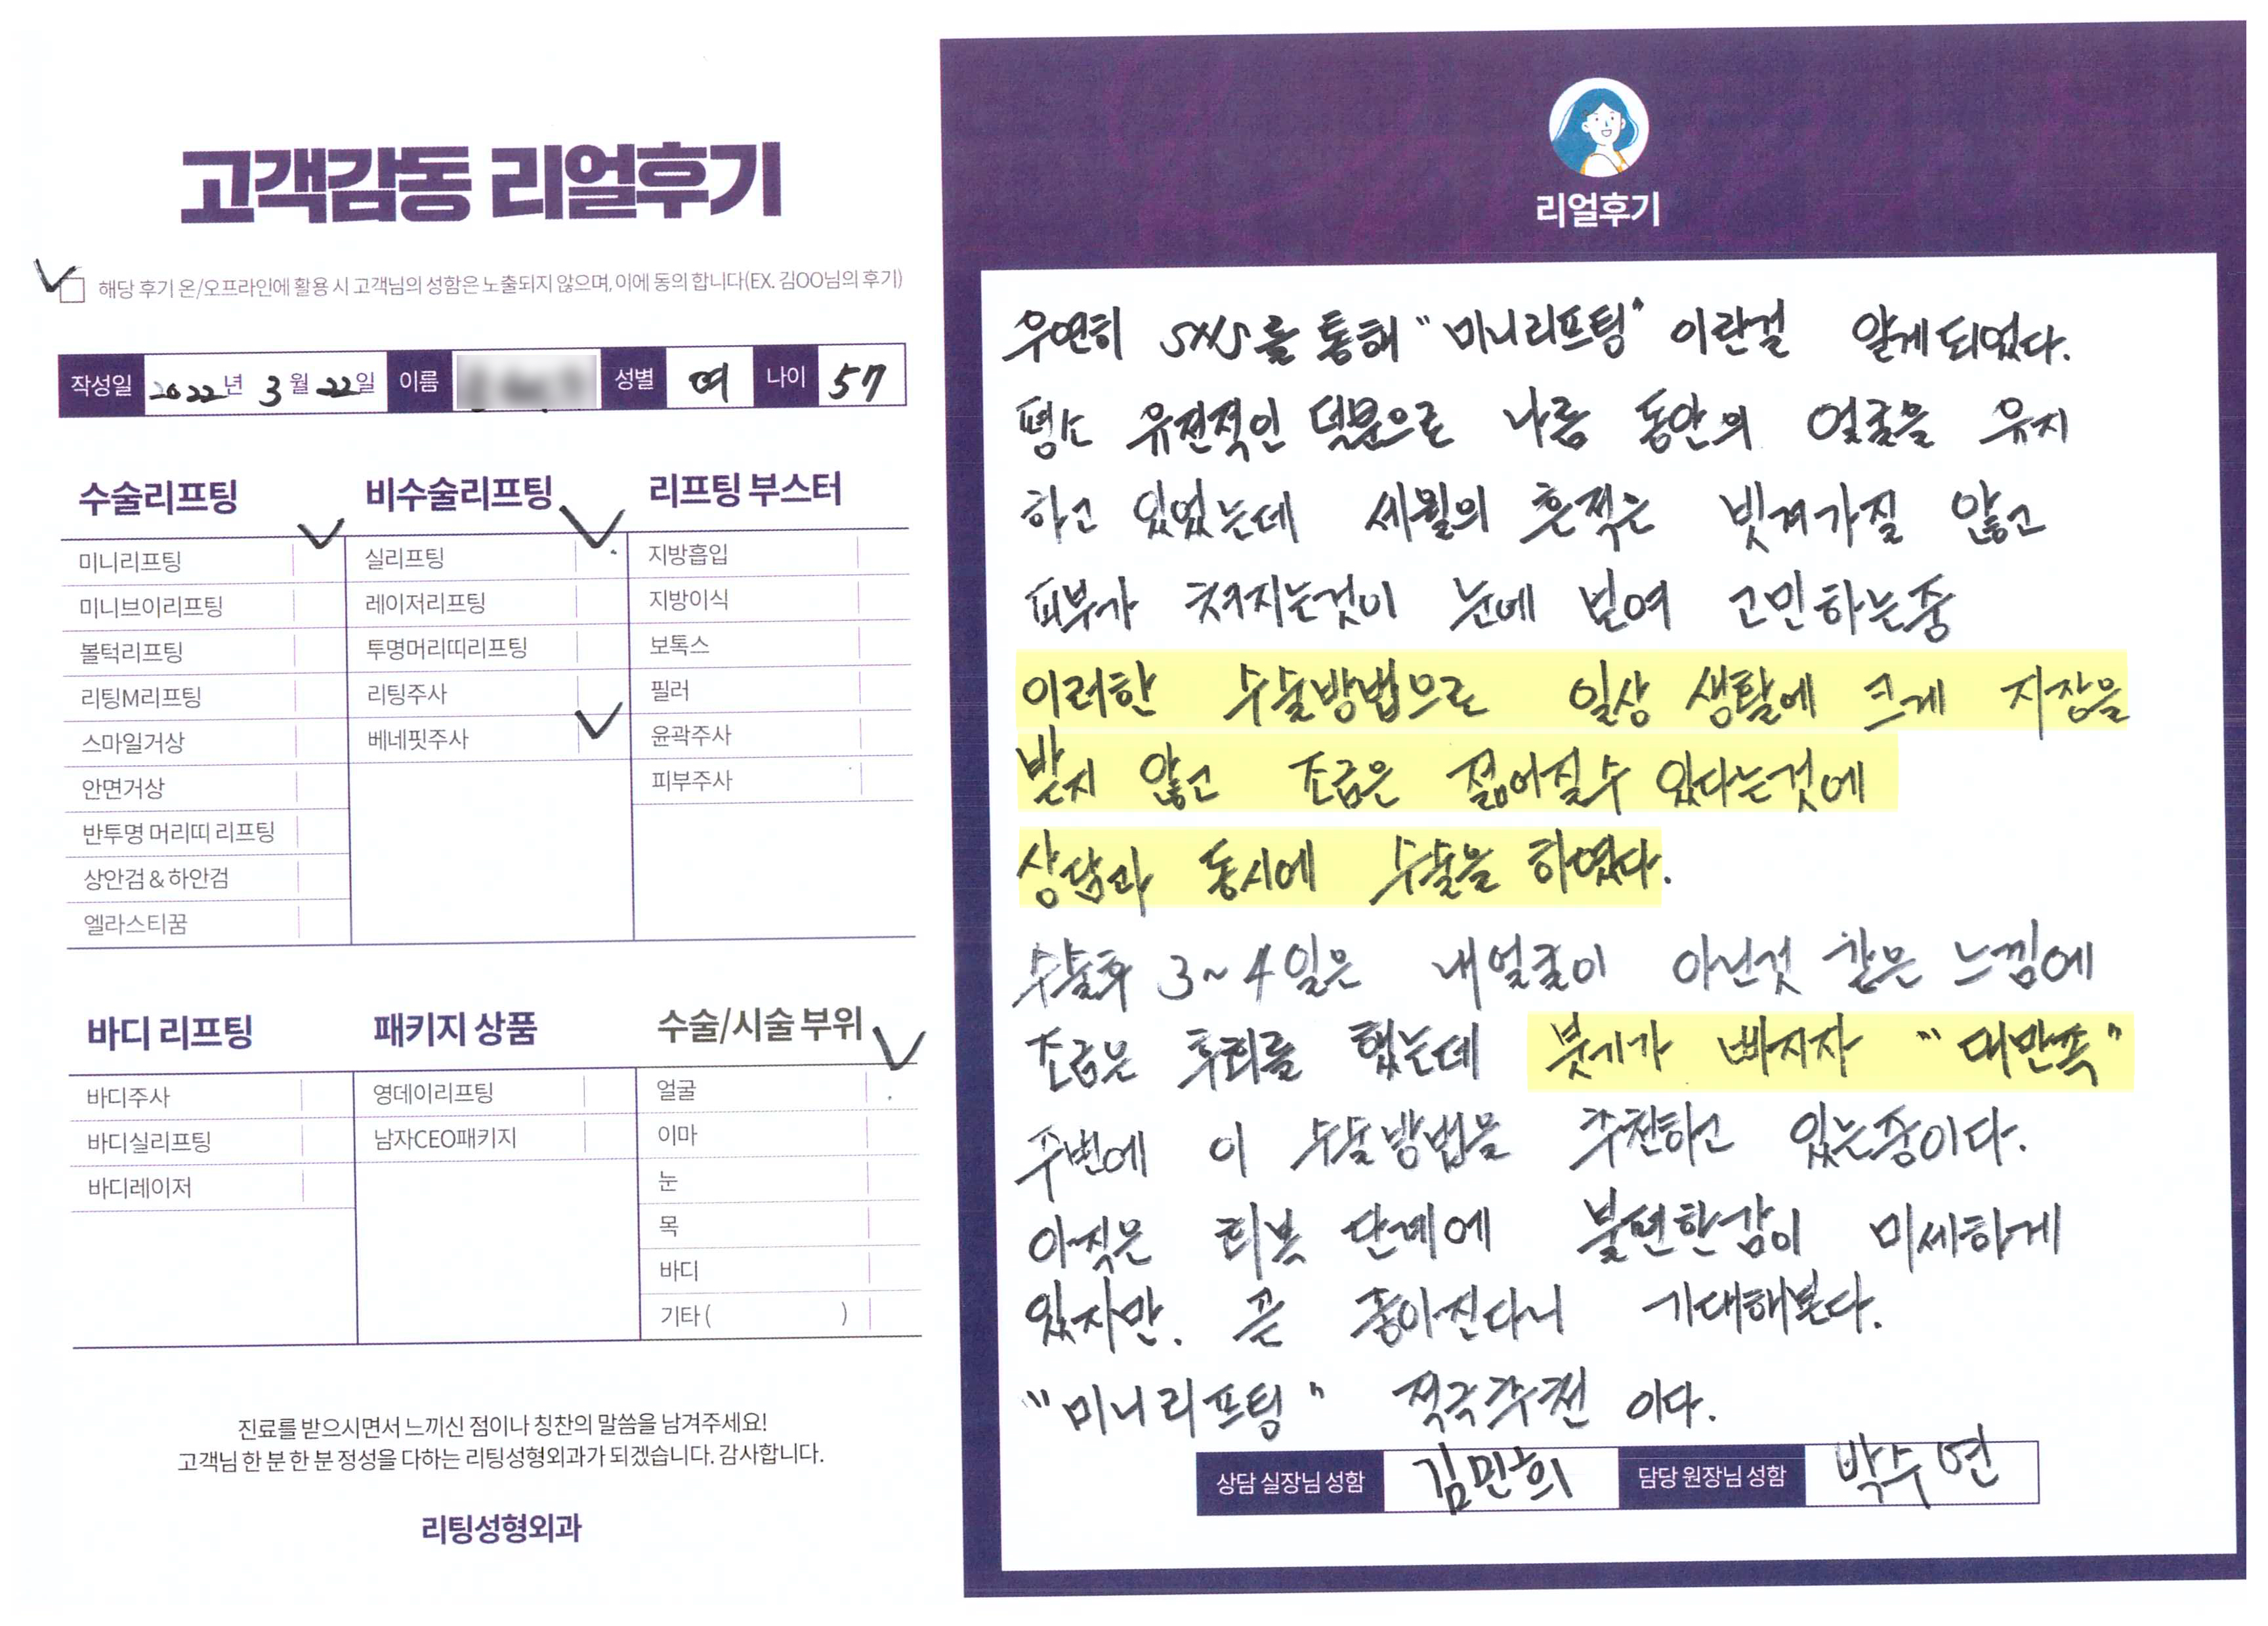 고객감동 리얼후기
해당 후기 온/오프라인에 활용 시 고객님의 성함은 노출되지 않으며, 이에 동의 합니다(EX. 김OO님의 후기)
작성일 2022년 3월 22일 이름 성별 여 나이 57
수술리프팅
미니리프팅
미니브이리프팅
볼턱리프팅
리팅M리프팅
스마일거상
안면거상
반투명 머리띠 리프팅
상안검 & 하안검
엘라스티꿈
비수술리프팅
실리프팅
레이저리프팅
투명머리띠리프팅
리팅주사
베네핏주사
리프팅 부스터
지방흡입
지방이식
보톡스
필러
윤곽주사
피부주사
바디 리프팅
바디주사
바디실리프팅
바디레이저
패키지 상품
영데이리프팅
남자CEO패키지
수술/시술 부위
얼굴
이마
눈
목
바디
기타 ( )
진료를 받으시면서 느끼신 점이나 칭찬의 말씀을 남겨주세요!
고객님 한 분 한 분 정성을 다하는 리팅성형외과가 되겠습니다. 감사합니다.
리팅성형외과
리얼후기
우연히 SNS를 통해 "미니리프팅" 이란걸 알게되었다.
평소 유전적인 덕분으로 나름 동안의 얼굴을 유지
하고 있었는데 세월의 흔적은 빗겨가질 않고
피부가 쳐지는것이 눈에 보여 고민하는중
이러한 수술방법으로 일상 생활에 크게 지장을
받지 않고 조금은 젊어질수 있다는것에
상담과 동시에 수술을 하였다.
수술후 3~4일은 내얼굴이 아닌것 같은 느낌에
조금은 후회를 했는데 붓기가 빠지자 "대만족"
주변에 이 수술방법을 추천하고 있는중이다.
아직은 회복 단계에 불편한감이 미세하게
있지만. 곧 좋아진다니 기대해본다.
"미니리프팅" 적극추천 이다.
상담 실장님 성함 김민희 담당 원장님 성함 박수연